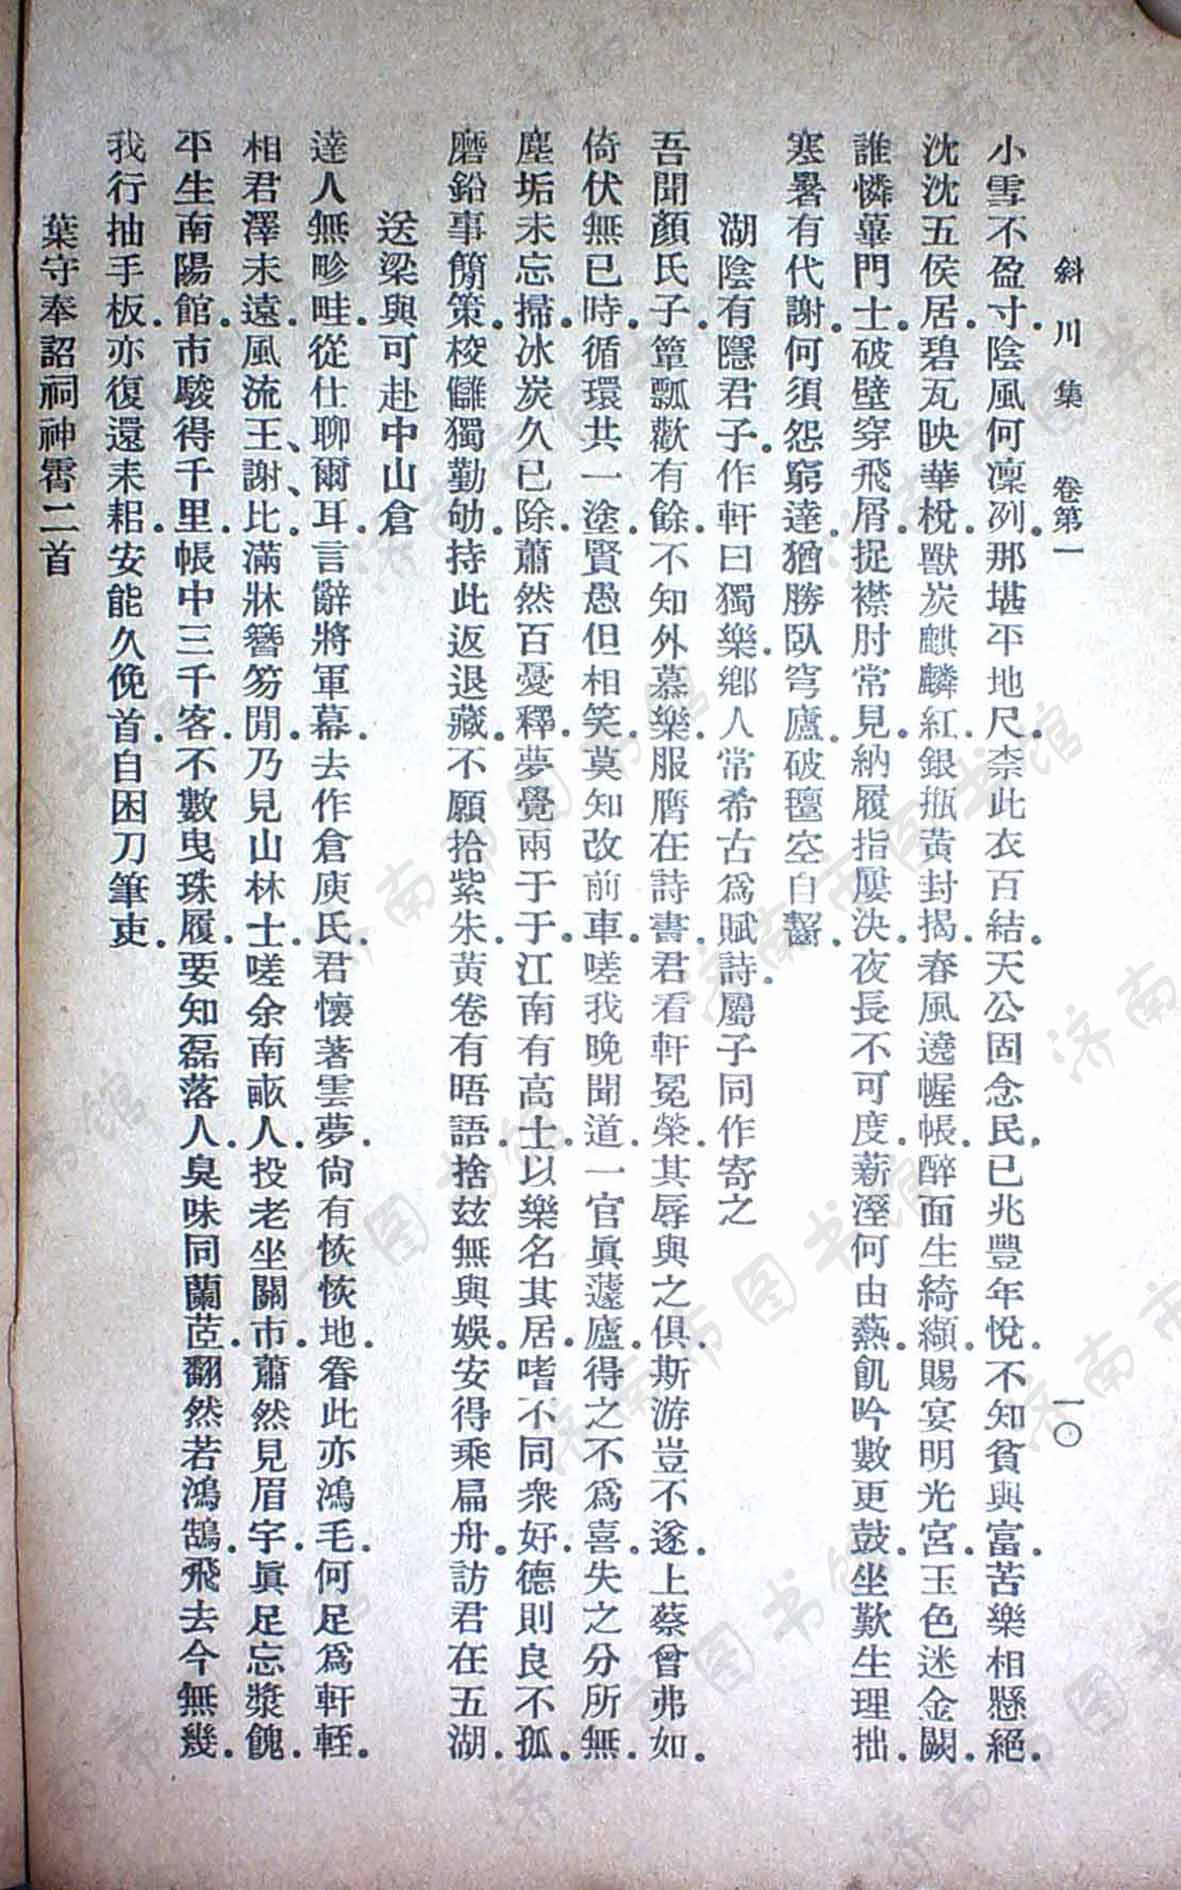 斜川集　卷第一　一〇
小雪不盈寸。陰風何凜冽。那堪平地尺。柰此衣百結。天公固念民。已兆豐年悅。不知貧與富。苦樂相懸絕。
沈沈五侯居。碧瓦映華梲。獸炭麒麟紅。銀瓶黃封揭。春風遶幄帳。醉面生綺纈。賜宴明光宮。玉色迷金闕。
誰憐蓽門士。破壁穿飛屑。捉襟肘常見。納履指屢決。夜長不可度。薪溼何由爇。飢吟數更鼓。坐歎生理拙。
寒暑有代謝。何須怨窮達。猶勝臥穹廬。破氈空自齧。
湖陰有隱君子。作軒曰獨樂。鄉人常希古爲賦詩。屬予同作寄之
吾聞顏氏子。簞瓢歡有餘。不知外慕樂。服膺在詩書。君看軒冕榮。其辱與之俱。斯游豈不遂。上蔡曾弗如。
倚伏無已時。循環共一塗。賢愚但相笑。莫知改前車。嗟我晚聞道。一官眞蘧廬。得之不爲喜。失之分所無。
塵垢未忘掃。冰炭久已除。蕭然百憂釋。夢覺兩于于。江南有高士。以樂名其居。嗜不同衆好。德則良不孤。
磨鉛事簡策。校讎獨勤劬。持此返退藏。不願拾紫朱。黃卷有晤語。捨茲無與娛。安得乘扁舟。訪君在五湖。
送梁與可赴中山倉
達人無畛畦。從仕聊爾耳。言辭將軍幕。去作倉庾氏。君懷著雲夢。尙有恢恢地。眷此亦鴻毛。何足爲軒輊。
相君澤未遠。風流王、謝、比。滿牀簪笏閒。乃見山林士。嗟余南畝人。投老坐關市。蕭然見眉宇。眞足忘漿餽。
平生南陽館。市駿得千里。帳中三千客。不數曳珠履。要知磊落人。臭味同蘭茝。翻然若鴻鵠。飛去今無幾。
我行抽手板。亦復還耒耜。安能久俛首。自困刀筆吏。
葉守奉詔祠神霄二首